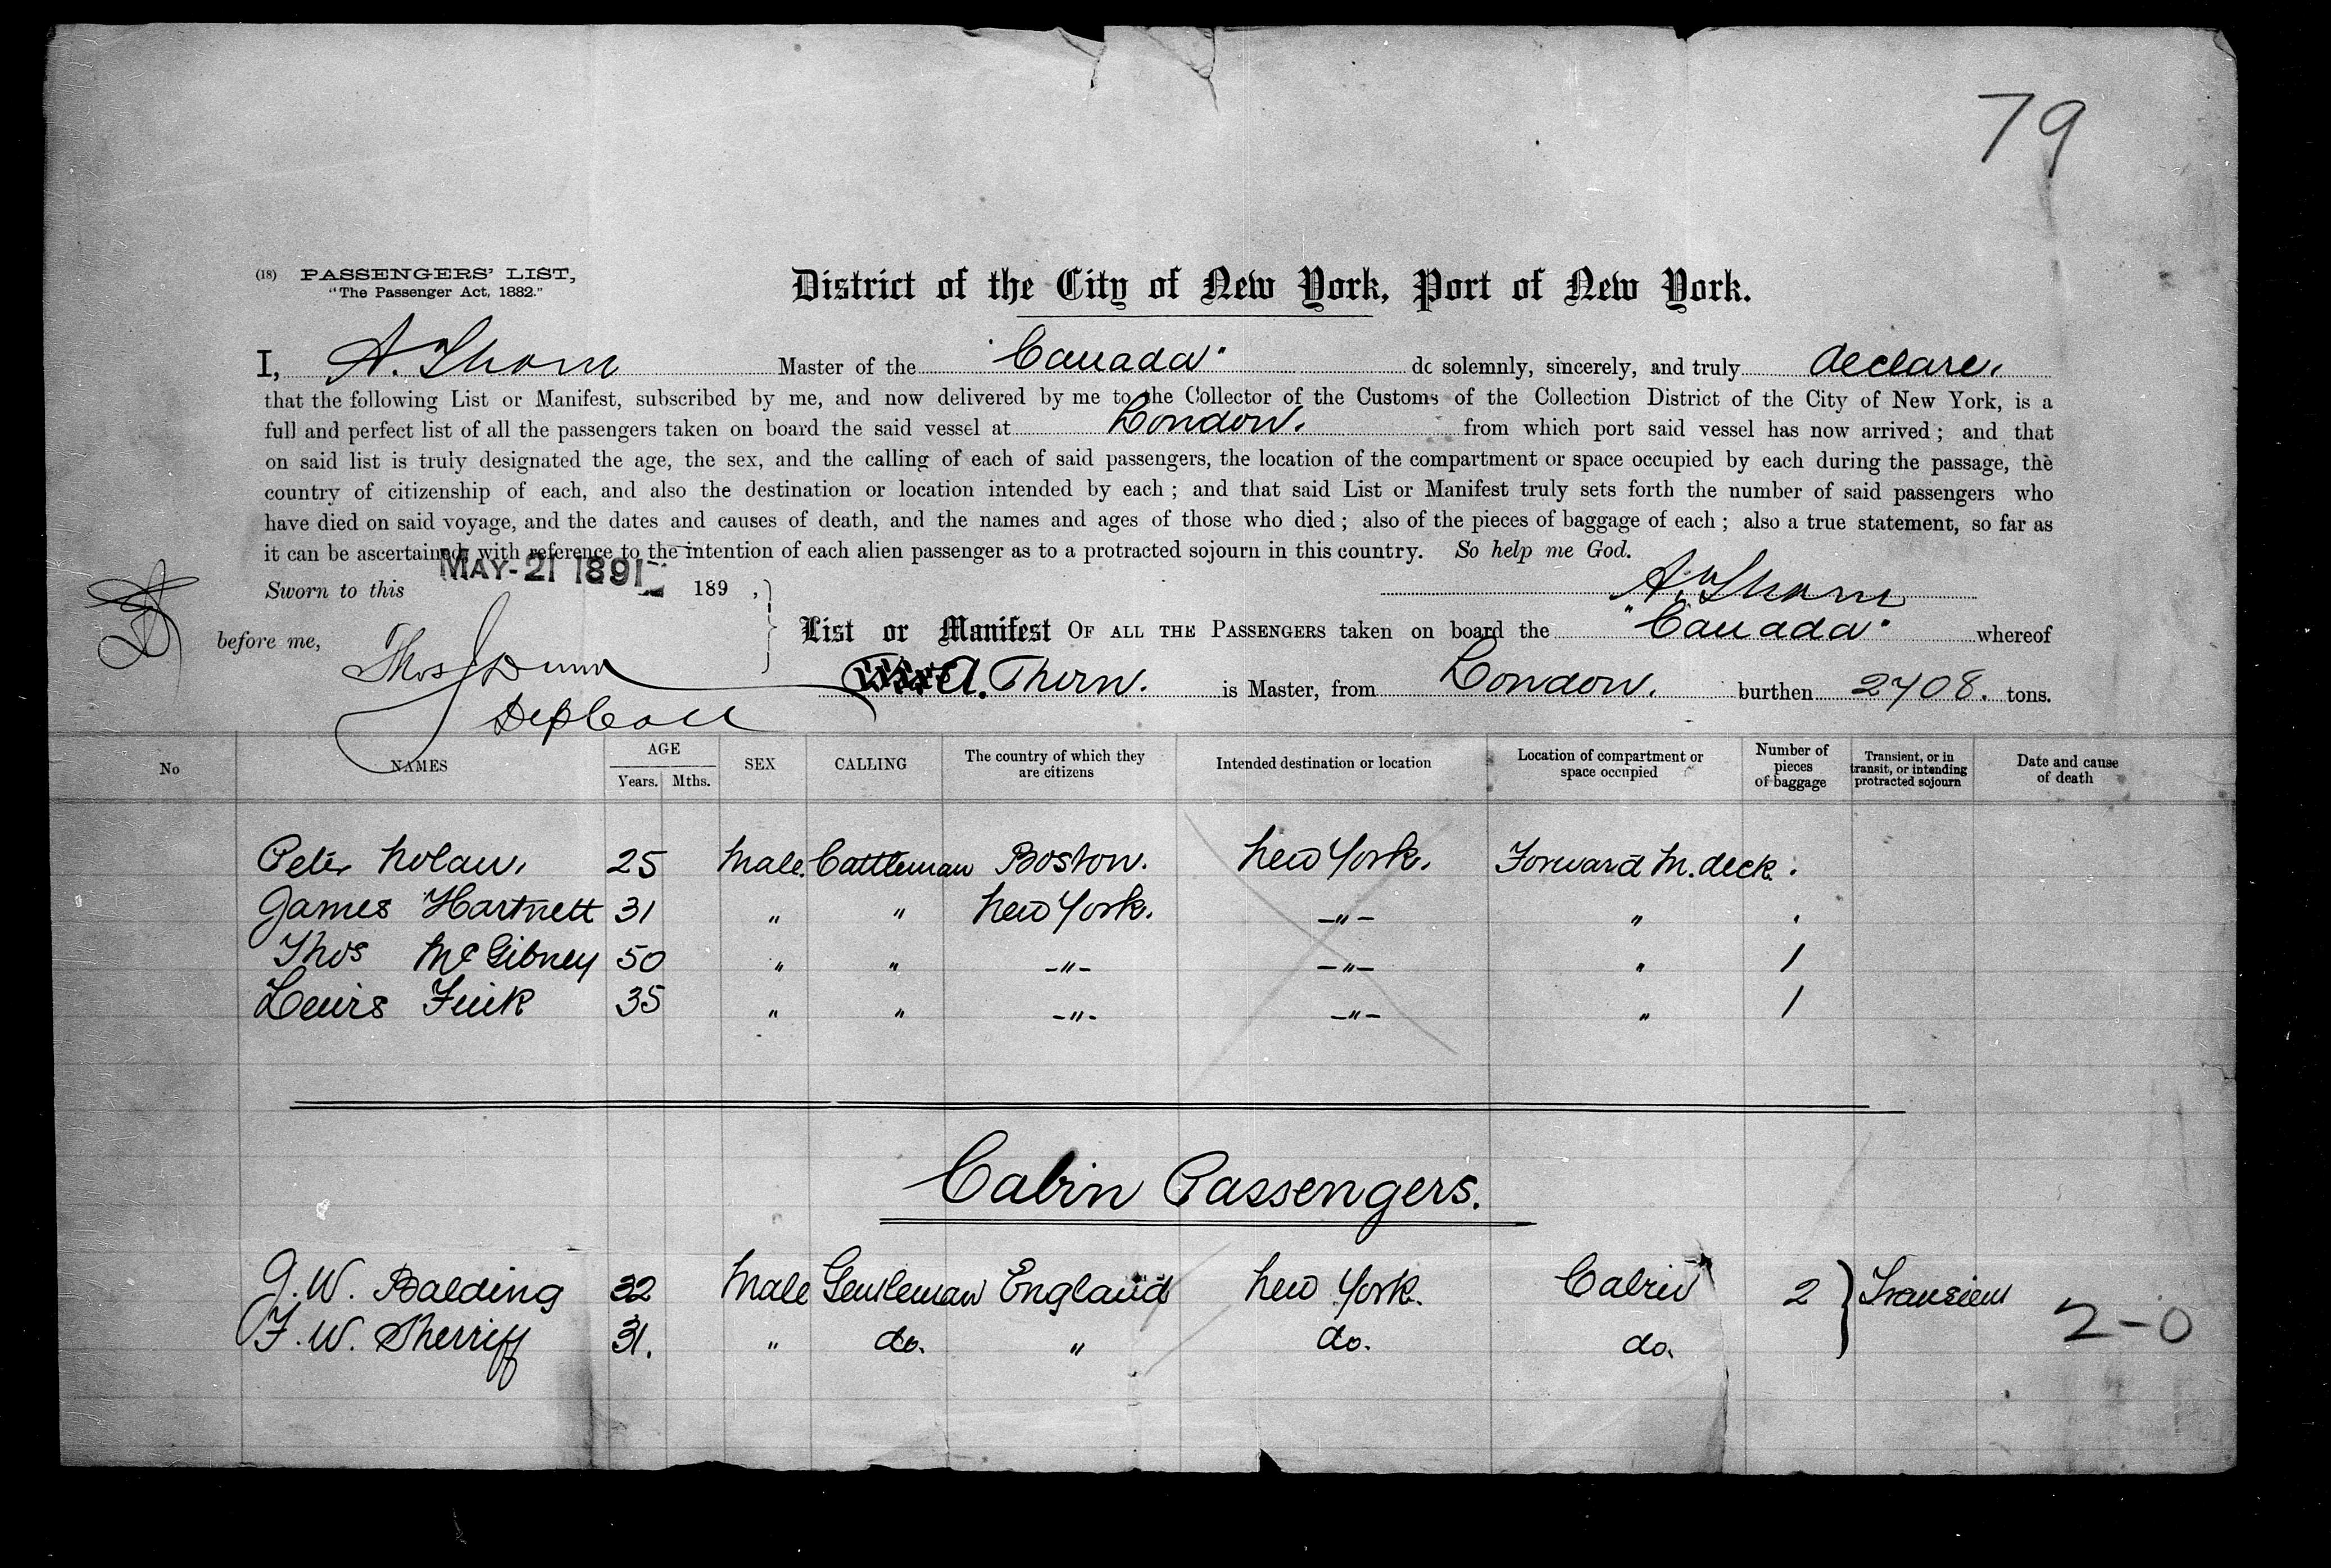 79
(18) PASSENGERS' LIST,
"The Passenger Act, 1882."
District of the City of New York, Port of New York.
I, A. Thom Master of the "Canada" do solemnly, sincerely, and truly declare,
that the following List or Manifest, subscribed by me, and now delivered by me to the Collector of the Customs of the Collection District of the City of New York, is a
full and perfect list of all the passengers taken on board the said vessel at London. from which port said vessel has now arrived; and that
on said list is truly designated the age, the sex, and the calling of each of said passengers, the location of the compartment or space occupied by each during the passage, the
country of citizenship of each, and also the destination or location intended by each; and that said List or Manifest truly sets forth the number of said passengers who
have died on said voyage, and the dates and causes of death, and the names and ages of those who died; also of the pieces of baggage of each; also a true statement, so far as
it can be ascertained, with reference to the intention of each alien passenger as to a protracted sojourn in this country. So help me God.
Sworn to this MAY-21 1891 189 ,
A. Thom
before me, Thos J Dunn
Dep Coll
List or Manifest OF ALL THE PASSENGERS taken on board the "Canada" whereof
A. Thern. is Master, from London. burthen 2708. tons.
No NAMES AGE Years. Mths. SEX CALLING The country of which they are citizens Intended destination or location Location of compartment or space occupied Number of pieces of baggage Transient, or in transit, or intending protracted sojourn Date and cause of death
Peter Nolan, 25 Male. Cattleman Boston. New York. Forward M. deck. .
James Hartnett 31 " " New York. -"- " .
Thos McGibney 50 " " -"- -"- " 1
Lewis Fink 35 " " -"- -"- " 1
Cabin Passengers.
G. W. Balding 32 Male Gentleman England New York. Cabin 2 } Transient
F. W. Sherriff 31. " do. " do. do.
2-0